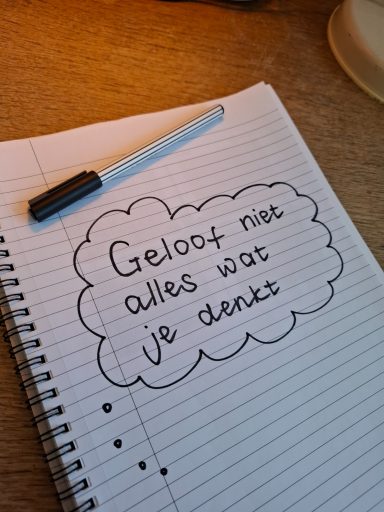 Geloof niet
alles wat
je denkt